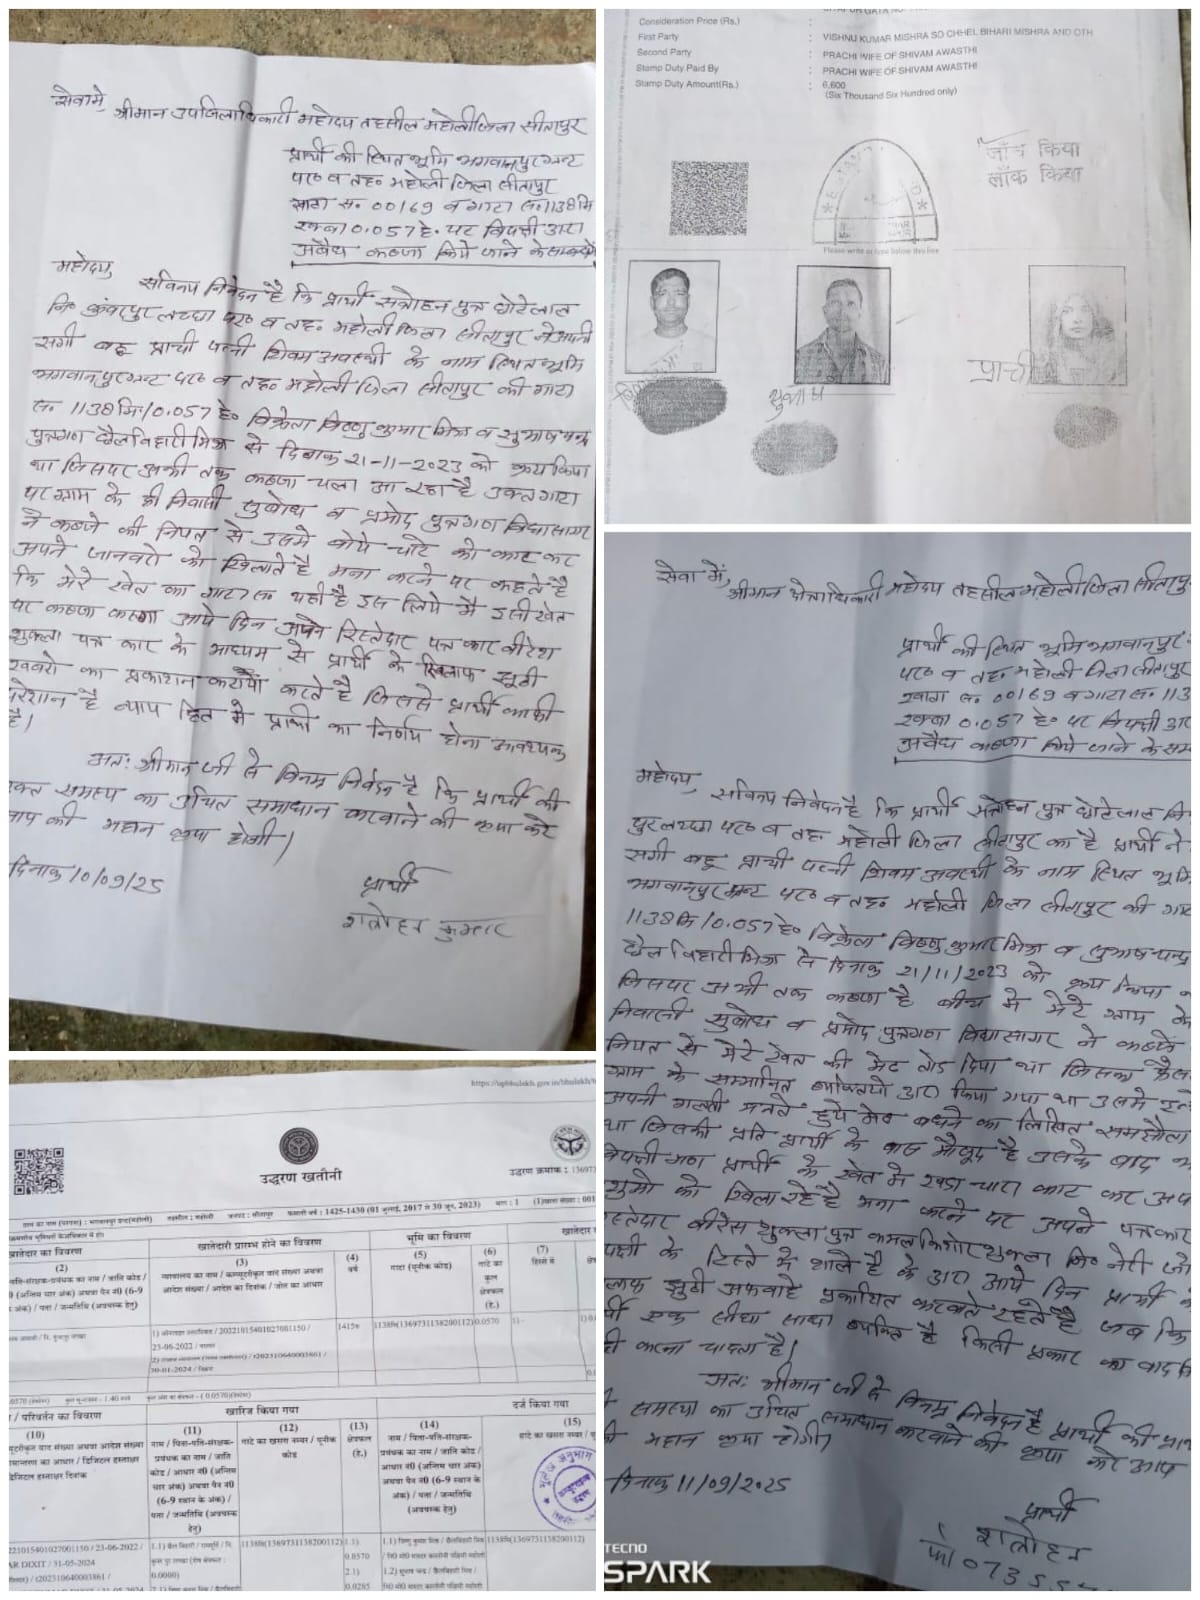 सेवामे,
श्रीमान उपजिलाधिकारी महोदय तहसील महोली जिला सीतापुर
प्रार्थी की स्थित भूमि भगवानपुर ग्रन्ट
पर० व तह० महोली जिला सीतापुर
खाता स. 00169 व गाटा स. 1138मि
रकबा 0.057 हे. पर विपक्षी द्वारा
अवैध कब्जा किये जाने के सम्बन्ध में
महोदय,
सविनय निवेदन है कि प्रार्थी सत्रोहन पुत्र छोटेलाल
नि० कुंवरपुर लच्छा पर० व तह० महोली जिला सीतापुर ने अपनी
सगी बहू प्राची पत्नी शिवम अवस्थी के नाम स्थित भूमि
भगवानपुर ग्रन्ट पर० व तह० महोली जिला सीतापुर की गाटा
स. 1138मि/0.057 हे० विक्रेता विष्णु कुमार मिश्र व सुभाष चन्द्र
पुत्रगण छैलविहारी मिश्र से दिनाक 21-11-2023 को क्रय किया
था जिसपर अभी तक कब्जा चला आ रहा है उक्त गाटा
पर ग्राम के ही निवासी सुबोध व प्रमोद पुत्रगण विद्यासागर
ने कब्जे की नियत से उसमे बोये चारे को काट कर
अपने जानवरो को खिलाते है मना करने पर कहते है
कि मेरे खेत का गाटा स. यही है इस लिये मै इसी खेत
पर कब्जा करूगा आये दिन अपने रिस्तेदार पत्रकार बीरेश
शुक्ला पत्र कार के माध्यम से प्रार्थी के खिलाफ झूठी
खबरो का प्रकाशन कराया करते है जिससे प्रार्थी काफी
परेशान है न्याय हित मे प्रार्थी का निर्णय होना आवश्यक
है।
अतः श्रीमान जी से विनम्र निवेदन है कि प्रार्थी की
उक्त समस्या का उचित समाधान करवाने की कृपा करे
आप की महान कृपा होगी।
दिनाक 10/09/25
प्रार्थी
सत्रोहन कुमार
Consideration Price (Rs.)
First Party : VISHNU KUMAR MISHRA SO CHHEL BIHARI MISHRA AND OTH
Second Party : PRACHI WIFE OF SHIVAM AWASTHI
Stamp Duty Paid By : PRACHI WIFE OF SHIVAM AWASTHI
Stamp Duty Amount(Rs.) : 6,600
(Six Thousand Six Hundred only)
जाँच किया
लॉक किया
Please write or type below this line
सुभाष
प्राची
सेवा में,
श्रीमान क्षेत्राधिकारी महोदय तहसील महोली जिला सीतापु
प्रार्थी की स्थित भूमि भगवानपुर
पर० व तह० महोली जिला सीतापुर
खाता स. 00169 व गाटा स. 113
रकबा 0.057 हे० पर विपक्षी द्वा
अवैध कब्जा किये जाने के सम्ब
महोदय,
सविनय निवेदन है कि प्रार्थी सत्रोहन पुत्र छोटेलाल नि
पुर लच्छा पर० व तह० महोली जिला सीतापुर का है प्रार्थी ने
सगी बहू प्राची पत्नी शिवम अवस्थी के नाम स्थित भूमि
भगवानपुर ग्रन्ट पर० व तह० महोली जिला सीतापुर की गा
1138मि/0.057 हे० विक्रेता विष्णु कुमार मिश्र व सुभाष चन्द्र
छैल विहारी मिश्र से दिनाक 21/11/2023 को क्रय किया
जिसपर अभी तक कब्जा है बीच मे मेरे ग्राम के
निवासी सुबोध व प्रमोद पुत्रगण विद्यासागर ने कब्जे
नियत से मेरे खेत की मेड तोड दिया था जिसका फैस
ग्राम के सम्मानित व्यक्तियो द्वारा किया गया था उसमे
अपनी गलती मानते हुये मेड बधने का लिखित समझौता
था जिसकी प्रति प्रार्थी के पास मौजूद है उसके बाद
विपक्षी गण प्रार्थी के खेत मे खडा चारा काट कर अप
शुओ को खिला रहे है मना करने पर अपने पत्रकार
रिस्तेदार बीरेस शुक्ला पुत्र कमल किशोर शुक्ला नि० नेरी जो
पक्षी के रिस्ते मे शाले है के द्वारा आये दिन प्रार्थी के
लाफ झूठी अफवाहे प्रकाशित करवाते रहते है जब कि
र्थी एक सीधा साधा व्यक्ति है किसी प्रकार का वाद
ही करना चाहता है।
अतः श्रीमान जी से विनम्र निवेदन है प्रार्थी की
समस्या का उचित समाधान करवाने की कृपा करे आप
की महान कृपा होगी।
दिनाक 11/09/2025
प्रार्थी
सत्रोहन
मो० 07355
TECNO
SPARK
https://upbhulekh.gov.in/bhulekh/
उद्धरण खतौनी
उद्धरण क्रमांक : 136973
ग्राम का नाम (परगना) : भगवानपुर ग्रन्ट(महोली) तहसील : महोली जनपद : सीतापुर फसली वर्ष : 1425-1430 (01 जुलाई, 2017 से 30 जून, 2023) भाग : 1
खातेदार का विवरण
खातेदारी प्रारम्भ होने का विवरण
भूमि का विवरण
(2) (3) (4) (5) (6) (7)
पति-संरक्षक-प्रबंधक का नाम / जाति कोड /
न्यायालय का नाम / कम्प्यूटरीकृत वाद संख्या अथवा
आदेश संख्या / आदेश का दिनांक / जोत का आधार
वर्ष
गाटा (यूनीक कोड)
गाटे का कुल क्षेत्रफल (हे.)
हिस्से में
23-06-2022
30-01-2024
1415फ
1138मि(1369731138200112)
0.0570
/ परिवर्तन का विवरण
खारिज किया गया
दर्ज किया गया
(10) (11) (12) (13) (14) (15)
नाम / पिता-पति-संरक्षक-प्रबंधक का नाम / जाति कोड / आधार नं0 (अन्तिम चार अंक) अथवा पैन नं0 (6-9 स्थान के अंक) / पता / जन्मतिथि (अवयस्क हेतु)
गाटे का खसरा नम्बर / यूनीक कोड
क्षेत्रफल (हे.)
नाम / पिता-पति-संरक्षक-प्रबंधक का नाम / जाति कोड / आधार नं0 (अन्तिम चार अंक) अथवा पैन नं0 (6-9 स्थान के अंक) / पता / जन्मतिथि (अवयस्क हेतु)
23-06-2022
AR DIXIT / 31-05-2024
1138मि(1369731138200112)
1.1)
0.0570
2.1)
0.0285
1138मि(1369731138200112)